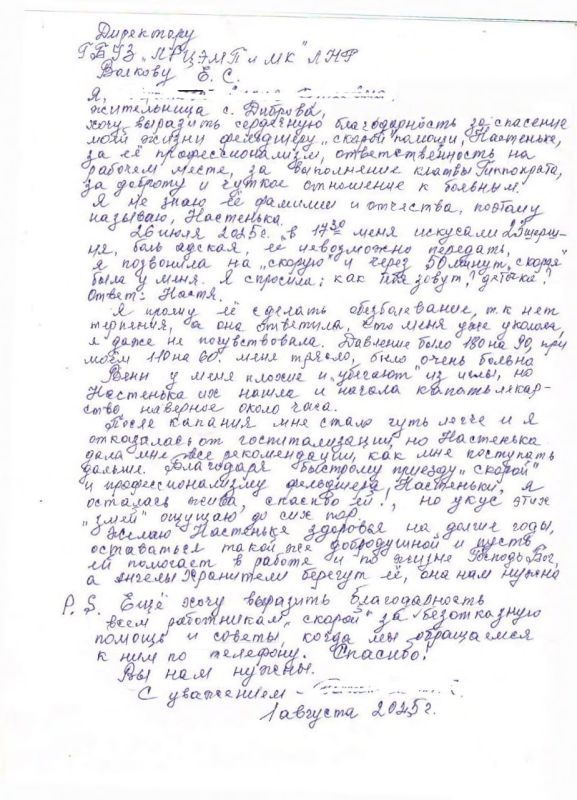 Директору
ГБУЗ „ЛРЦЭМП и МК" ЛНР
Волкову Е. С.
Я,
жительница с. Диброва,
хочу выразить сердечную благодарность за спасение
моей жизни фельдшеру „скорой" помощи, Настеньке,
за её профессионализм, ответственность на
рабочем месте, за выполнение клятвы Гиппократа,
за доброту и чуткое отношение к больным.
Я не знаю её фамилии и отчества, поэтому
называю, Настенька.
26 июля 2025г. в 17 30 меня искусали 2 шерш-
ня, боль адская, её невозможно передать,
я позвонила на „скорую" и через 50 минут „скорая"
была у меня. Я спросила: как тебя зовут, деточка?
Ответ: Настя.
Я прошу её сделать обезболевание, т.к нет
терпения, а она ответила, что меня уже уколола,
я даже не почувствовала. Давление было 180 на 90, при
моём 110 на 60. меня трясло, было очень больна
Вены у меня плохие и „убегают" из иглы, но
Настенька их нашла и начала капать лекар-
ство наверное около часа.
После капания мне стало чуть легче и я
отказалась от госпитализации, но Настенька
дала мне все рекомендации, как мне поступать
дальше. Благодаря быстрому приезду „скорой"
и профессионализму фельдшера, Настеньки, я
осталась жива, спасибо ей!, но укус этих
„змей" ощущаю до сих пор.
Желаю Настеньке здоровья на долгие годы,
оставаться такой же добродушной и пусть
ей помогает в работе и по жизне Господь Бог,
а ангелы Хранители берегут её, она нам нужна
P. S. Ещё хочу выразить благодарность
всем работникам „скорой" за безотказную
помощь и советы, когда мы обращаемся
к ним по телефону. Спасибо!
Вы нам нужны.
С уважением -
1 августа 2025г.